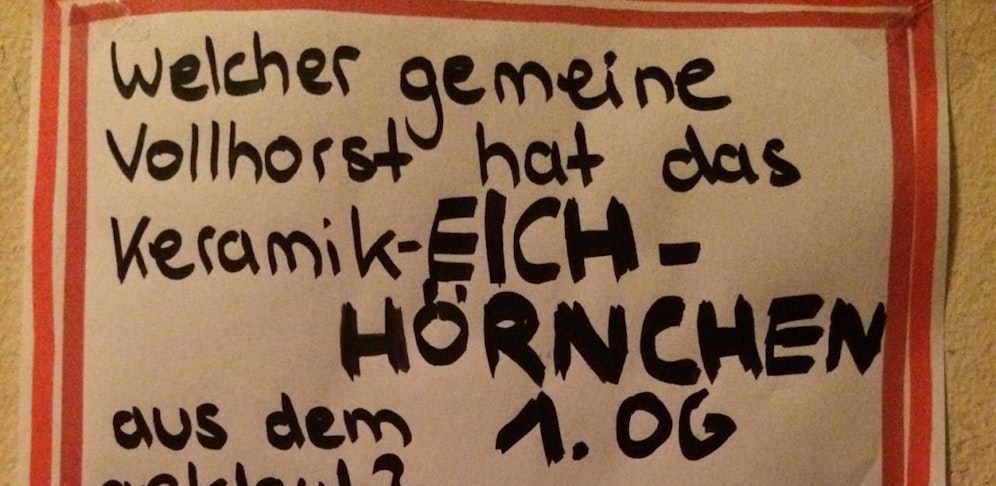 Welcher gemeine
Vollhorst hat das
Keramik-EICH-
HÖRNCHEN
aus dem 1. OG
geklaut?